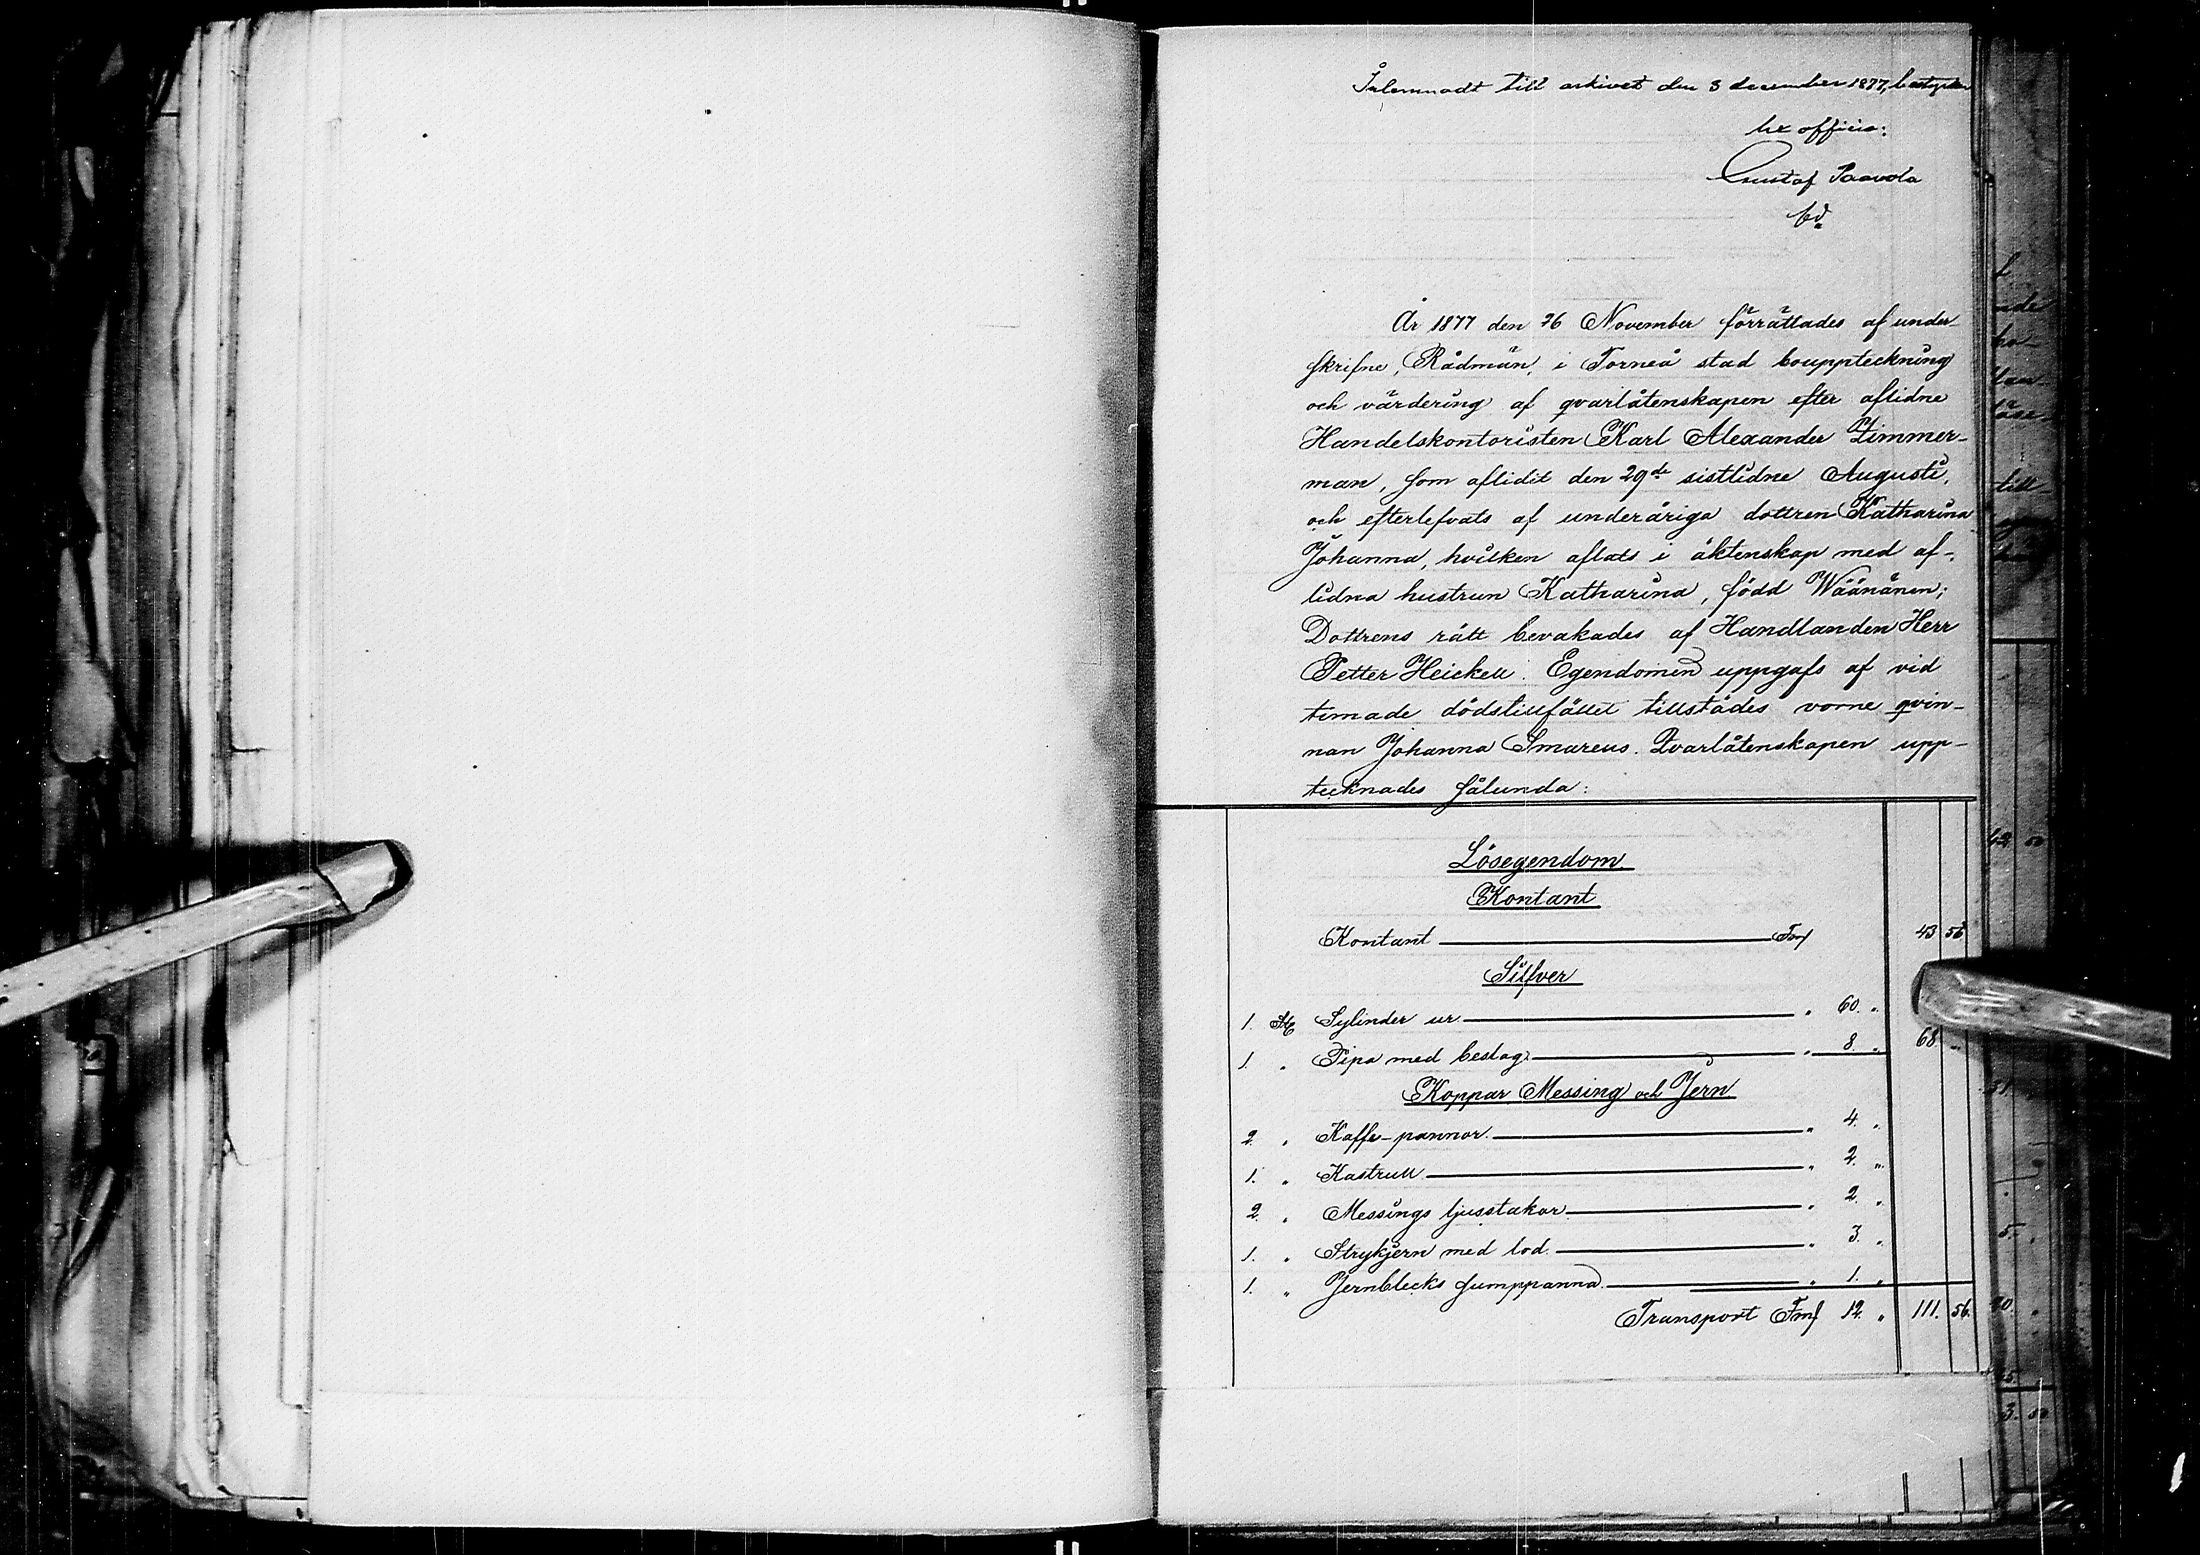 Inlemnadt till arkivet den 3 december 1877, bestyrker
ex officio:
Gustaf Paavola
År 1877 den 26 November förrättades af under-
skrifne, Rådmän, i Torneå stad bouppteckning
och värdering af qvarlåtenskapen efter aflidne
Handelskontoristen Karl Alexander Zimmer-
man, som aflidit den 29de sistlidne Augusti,
och efterlefvats af underåriga dottren Katharina
Johanna, hvilken aflats i äktenskap med af-
lidna hustrun Katharina, född Wäänänen;
Dottrens rätt bevakades af Handlanden Herr
Petter Heickell. Egendomen uppgafs af vid
timade dödstillfället tillstädes varne qvin-
nan Johanna Smareus. Qvarlåtenskapen upp-
tecknades sålunda:
Lösegendom
Kontant
Kontant Fmf 43 56
Silfver
1. St Sylinder ur " 60. "
1. " Pipa med beslag " 8. " 68. "
Koppar, Messing och Jern
2. " Kaffe-pannor " 4. "
1. " Kastrull " 2. "
2. " Messings ljusstakar " 2. "
1. " Strykjern med lod. " 3. "
1. " Jernblecks sumppanna " 1. "
Transport Fmf 12. " 111. 56.